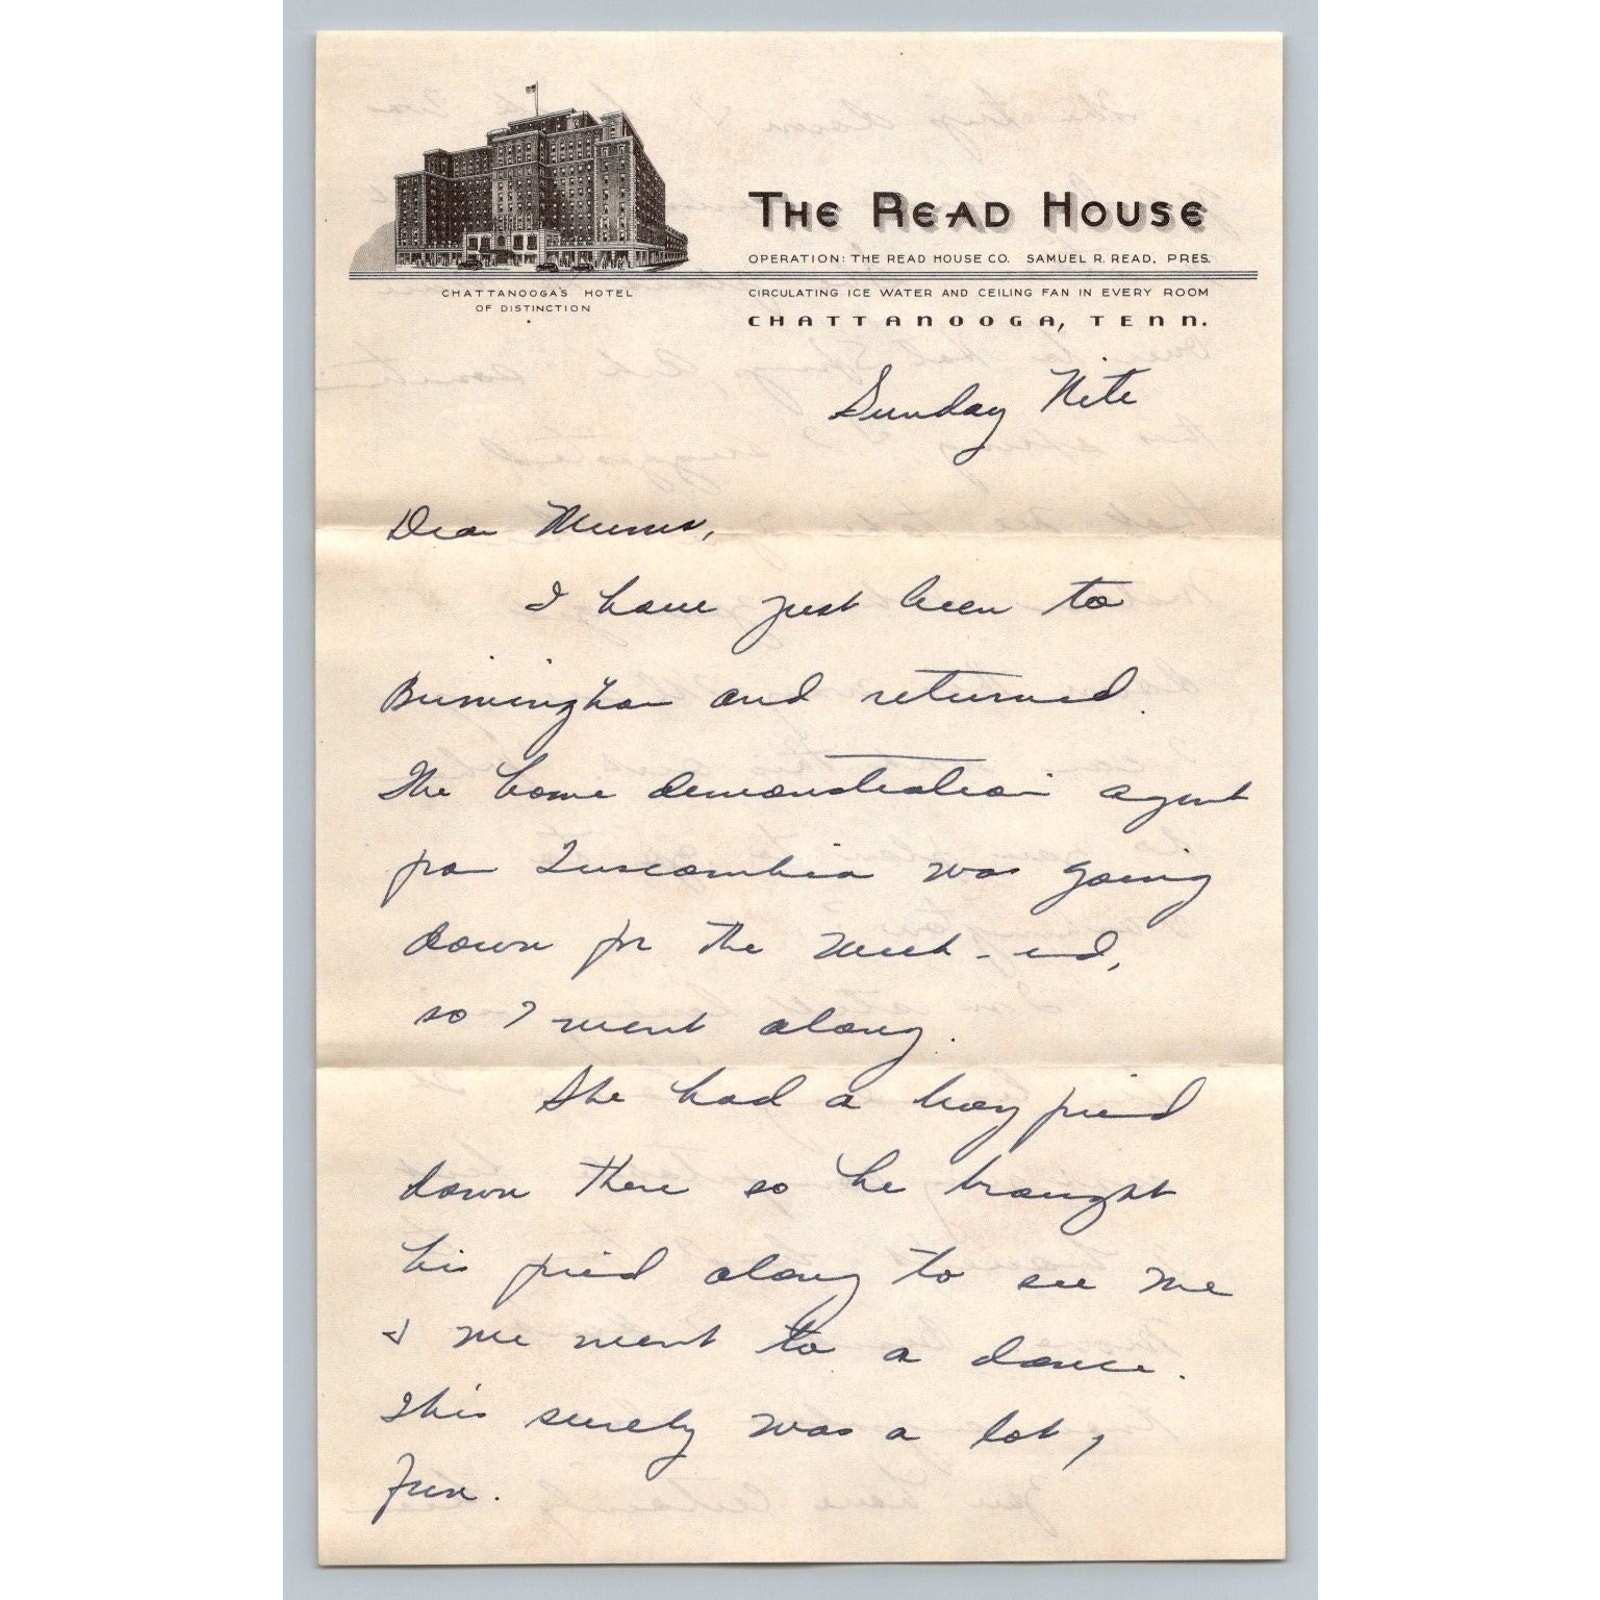 THE READ HOUSE
OPERATION: THE READ HOUSE CO. SAMUEL R. READ, PRES.
CHATTANOOGA'S HOTEL
OF DISTINCTION
CIRCULATING ICE WATER AND CEILING FAN IN EVERY ROOM
CHATTANOOGA, TENN.
Sunday Nite
Dear Mums,
I have just been to
Birmingham and returned.
The home demonstration agent
from Tuscumbia was going
down for the week-end,
so I went along.
She had a boy friend
down there so he brought
his friend along to see me
& we went to a dance.
This surely was a lot
fun.